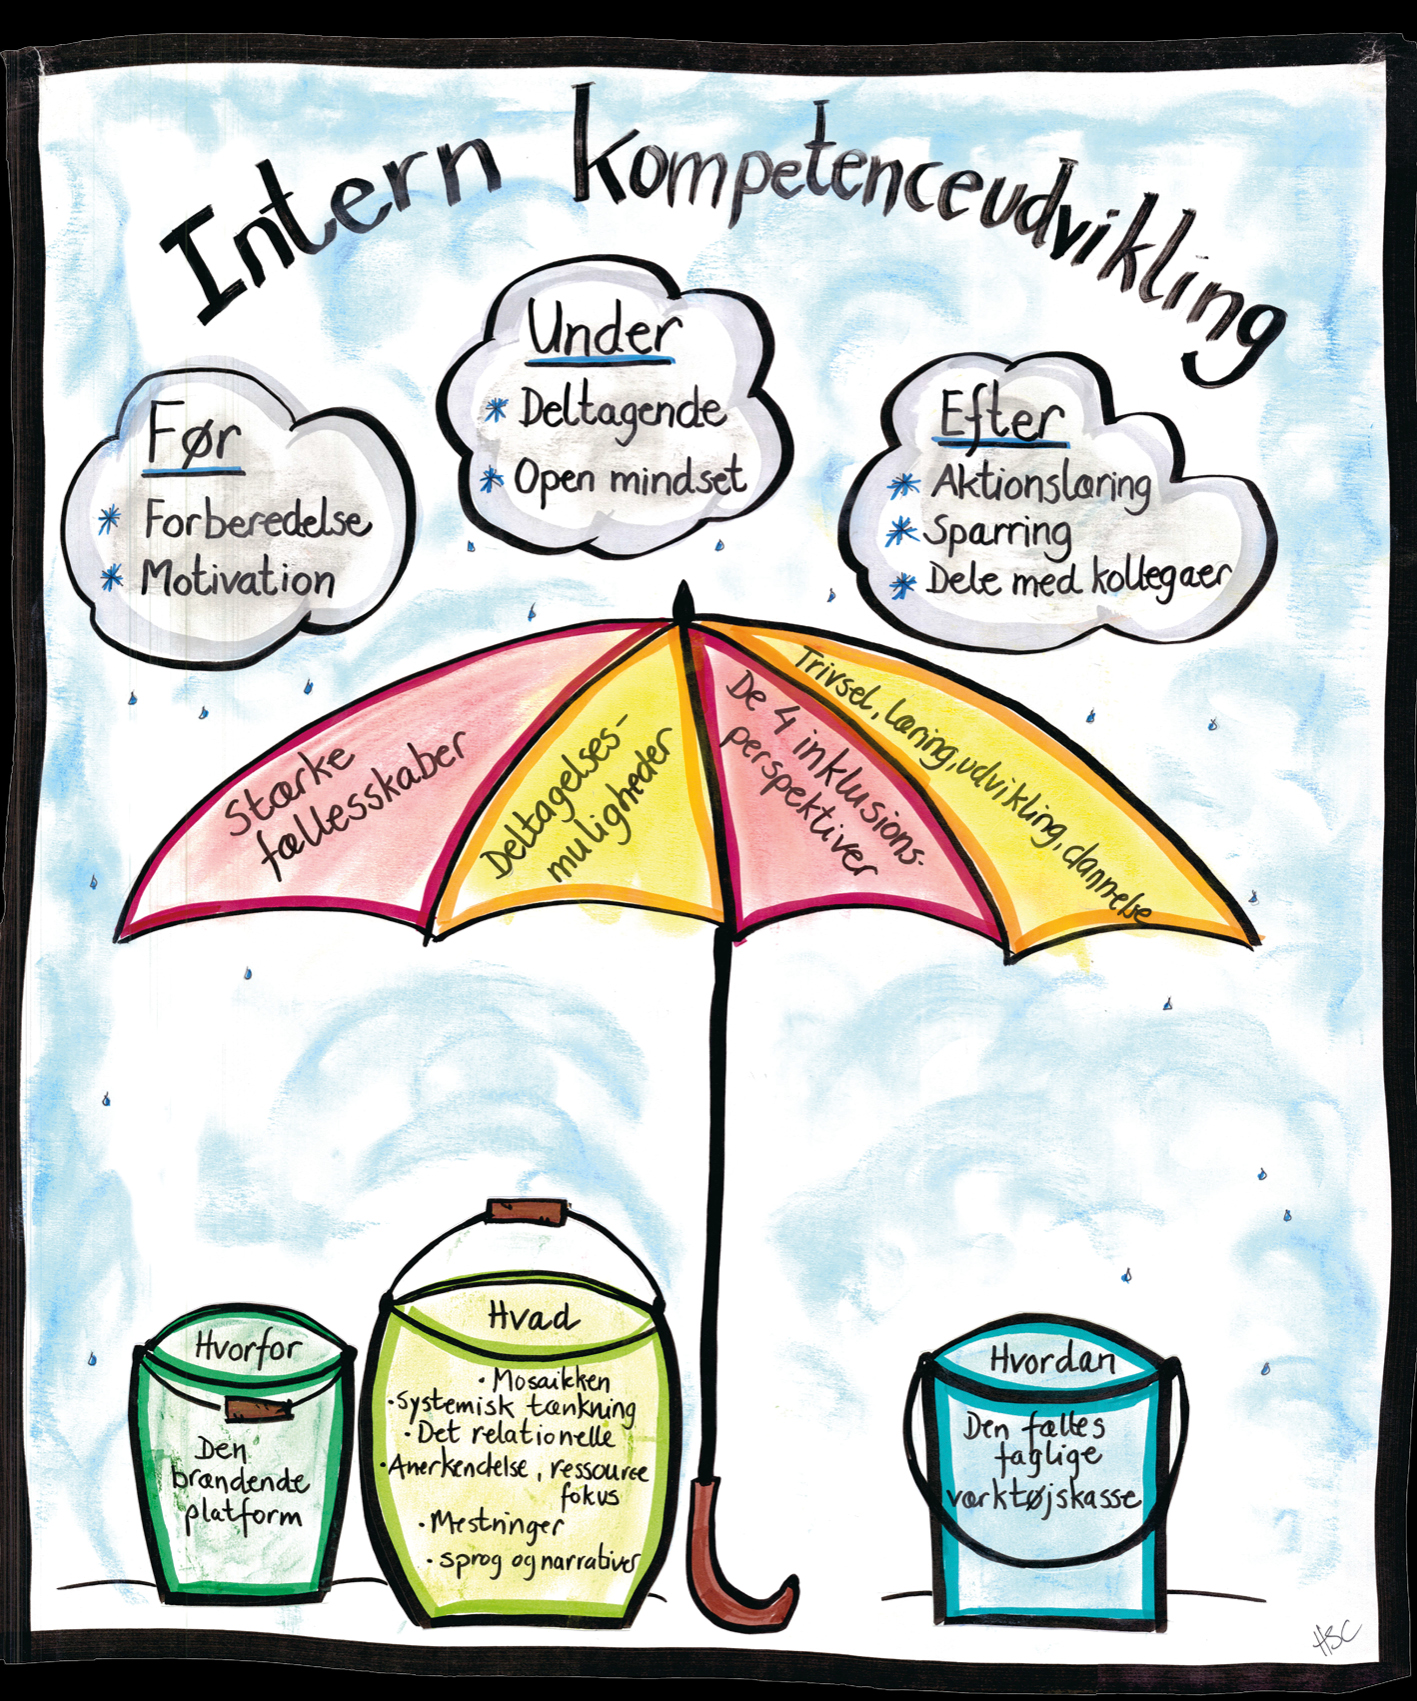 Intern kompetenceudvikling
Før
Forberedelse
Motivation
Under
Deltagende
Open mindset
Efter
Aktionslæring
Sparring
Dele med kollegaer
Stærke
fællesskaber
Deltagelses-
muligheder
De 4 inklusions-
perspektiver
Trivsel, læring, udvikling, dannelse
Hvorfor
Den
brændende
platform
Hvad
· Mosaikken
· Systemisk tænkning
· Det relationelle
· Anerkendelse, ressource
fokus
· Mestringer
· sprog og narrativer
Hvordan
Den fælles
faglige
værktøjskasse
HBC